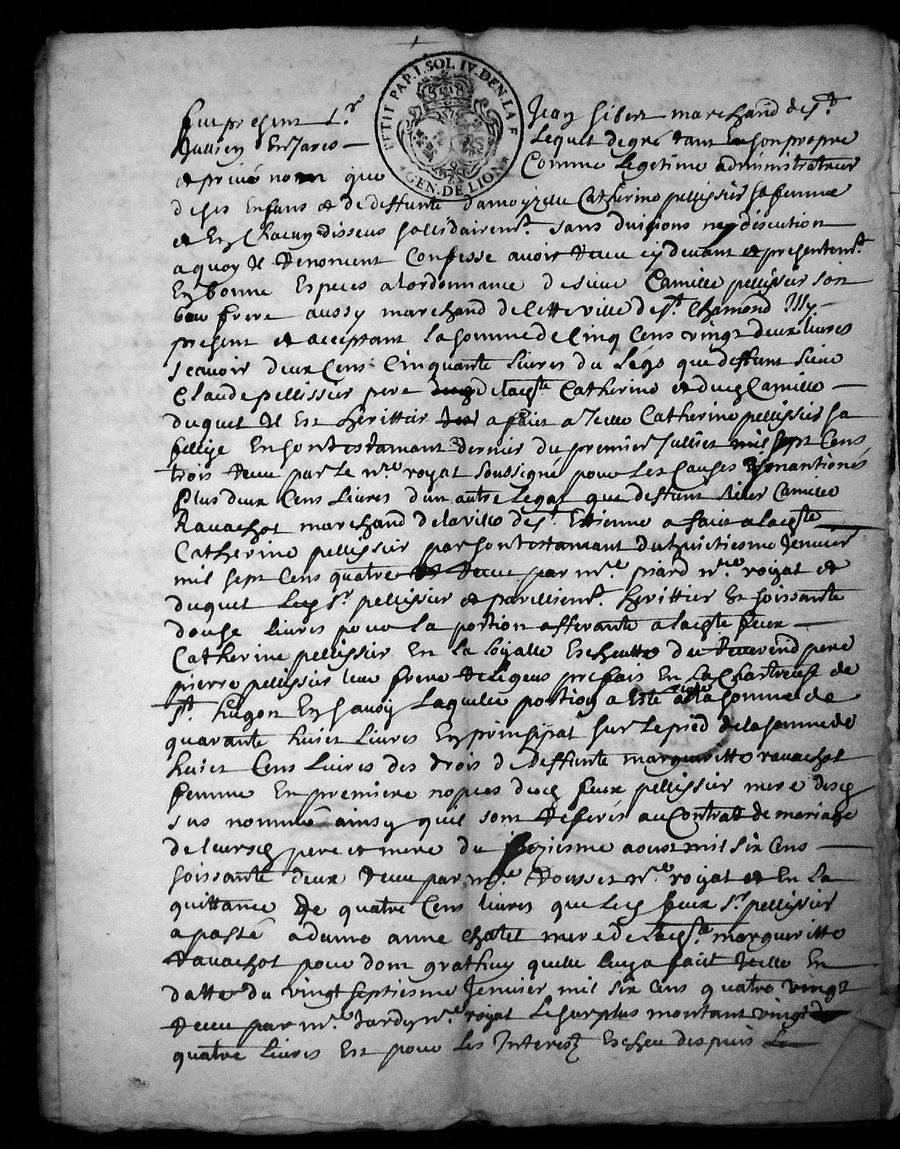 PETIT PAP. 1. SOL IV. DEN. LA F
GEN. DE LION
Fut present Sr Jean Gibert marchand de St
Jullien En Jarés — Lequel de gré tant En son propre
et privé nom que Comme Legetime administratteur
de ses Enfans et de deffunte damoyzelle Catherine pellissier sa femme
et En Chacun disseux sollidairemt sans divisions ny discution
a quoy Il Renoncent Confesse avoir Receu cy devant et presentemt
En bonne Especes a lordonnance de sieur Camille pellissier son
beau frere aussy marchand de Cette ville de St Chamond Illy
present et acceptant La somme de Cinq Cens vingt deux livres
scavoir deux Cens Cinquante livres du Legs que deffunt sieur
Claude pellissier pere de lad Catherine et dud Camille —
duquel Il est Herittier a fait a Icelle Catherine pellissier sa
fillie En son testamant dernier du premier Juillet mil sept Cens
trois Receu par le nre royal soussigné pour les Causes y mantionés
Plus deux Cens Livres dun autre Legat que deffunt sieur Camille
Ravachot marchand de la ville de St Ettienne a fait a lad
Catherine pellissier par son testamant du huictiesme Janvier
mil sept Cens quatre Receu par me pirard nre royal et
duquel Led Sr pellissier Est pareillemt herittier Et soissante
douze livres pour La portion afferante a lad feue —
Catherine pellissier En La loyalle Escheutte du Reverend pere
pierre pellissier leur frere Relligeus profais En La Chartreuse de
St hugon En Savoy Laquelle portion a Esté a la somme de
quarante huict Livres En principal sur le pied de la somme de
huict Cens livres des drois de deffunte margueritte ravachot
femme En premiere nopces dud feux pellissier mere desd
sus nommés ainsy quil sont Referés au Contrat de mariage
de leursd pere et mere du aoust mil six Cens —
soissante deux Receu par me Rousset nre royal et En La
quittance de quatre Cens livres que led feux Sr pellissier
a passé a dame anne Chalet mere de lad margueritte
Ravachot pour don grathuy quelle luy a fait Icelle En
datte du vingt septiesme Janvier mil six Cens quatre vingt
Receu par me Jardy nre royal Le surplus montant vingt
quatre livres Est pour les Interest Escheu despuis